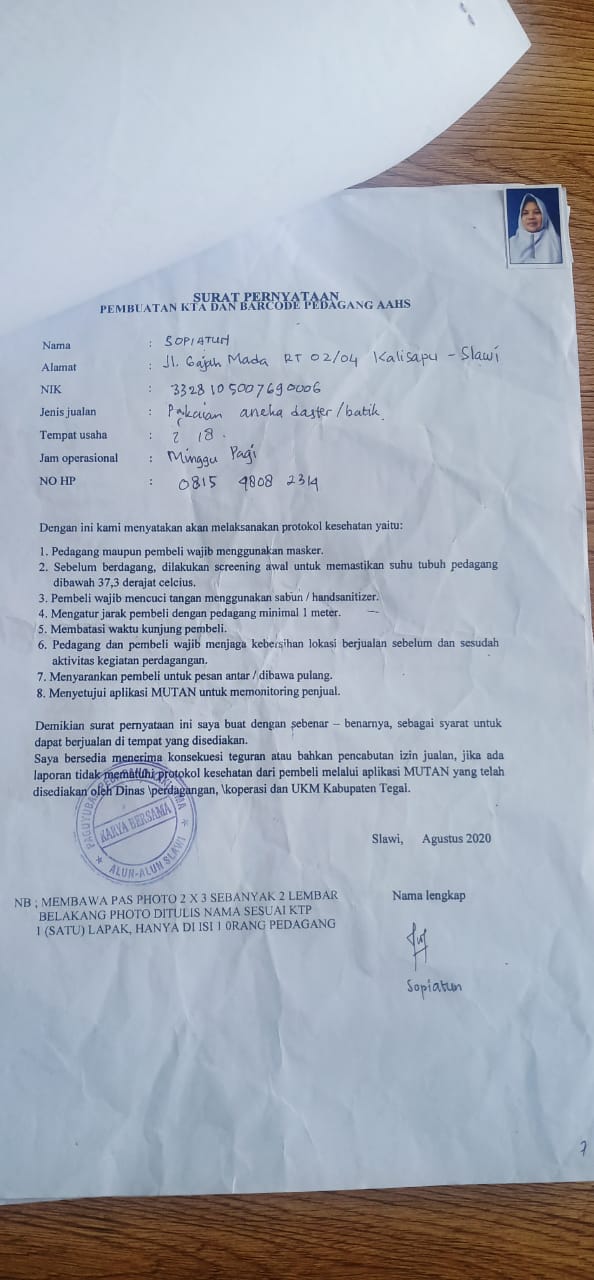 SURAT PERNYATAAN
PEMBUATAN KTA DAN BARCODE PEDAGANG AAHS
Nama : SOPIATUN
Alamat : Jl. Gajah Mada RT 02/04 Kalisapu - Slawi
NIK : 3328105007690006
Jenis jualan : Pakaian aneka daster/batik
Tempat usaha : 2 18.
Jam operasional : Minggu Pagi
NO HP : 0815 4808 2314
Dengan ini kami menyatakan akan melaksanakan protokol kesehatan yaitu:
1. Pedagang maupun pembeli wajib menggunakan masker.
2. Sebelum berdagang, dilakukan screening awal untuk memastikan suhu tubuh pedagang
dibawah 37,3 derajat celcius.
3. Pembeli wajib mencuci tangan menggunakan sabun / handsanitizer.
4. Mengatur jarak pembeli dengan pedagang minimal 1 meter.
5. Membatasi waktu kunjung pembeli.
6. Pedagang dan pembeli wajib menjaga kebersihan lokasi berjualan sebelum dan sesudah
aktivitas kegiatan perdagangan.
7. Menyarankan pembeli untuk pesan antar / dibawa pulang.
8. Menyetujui aplikasi MUTAN untuk memonitoring penjual.
Demikian surat pernyataan ini saya buat dengan sebenar – benarnya, sebagai syarat untuk
dapat berjualan di tempat yang disediakan.
Saya bersedia menerima konsekuesi teguran atau bahkan pencabutan izin jualan, jika ada
laporan tidak mematuhi protokol kesehatan dari pembeli melalui aplikasi MUTAN yang telah
disediakan oleh Dinas \perdagangan, \koperasi dan UKM Kabupaten Tegal.
KARYA BERSAMA
ALUN-ALUN SLAWI
Slawi, Agustus 2020
NB ; MEMBAWA PAS PHOTO 2 X 3 SEBANYAK 2 LEMBAR
BELAKANG PHOTO DITULIS NAMA SESUAI KTP
1 (SATU) LAPAK, HANYA DI ISI 1 0RANG PEDAGANG
Nama lengkap
Sopiatun
7